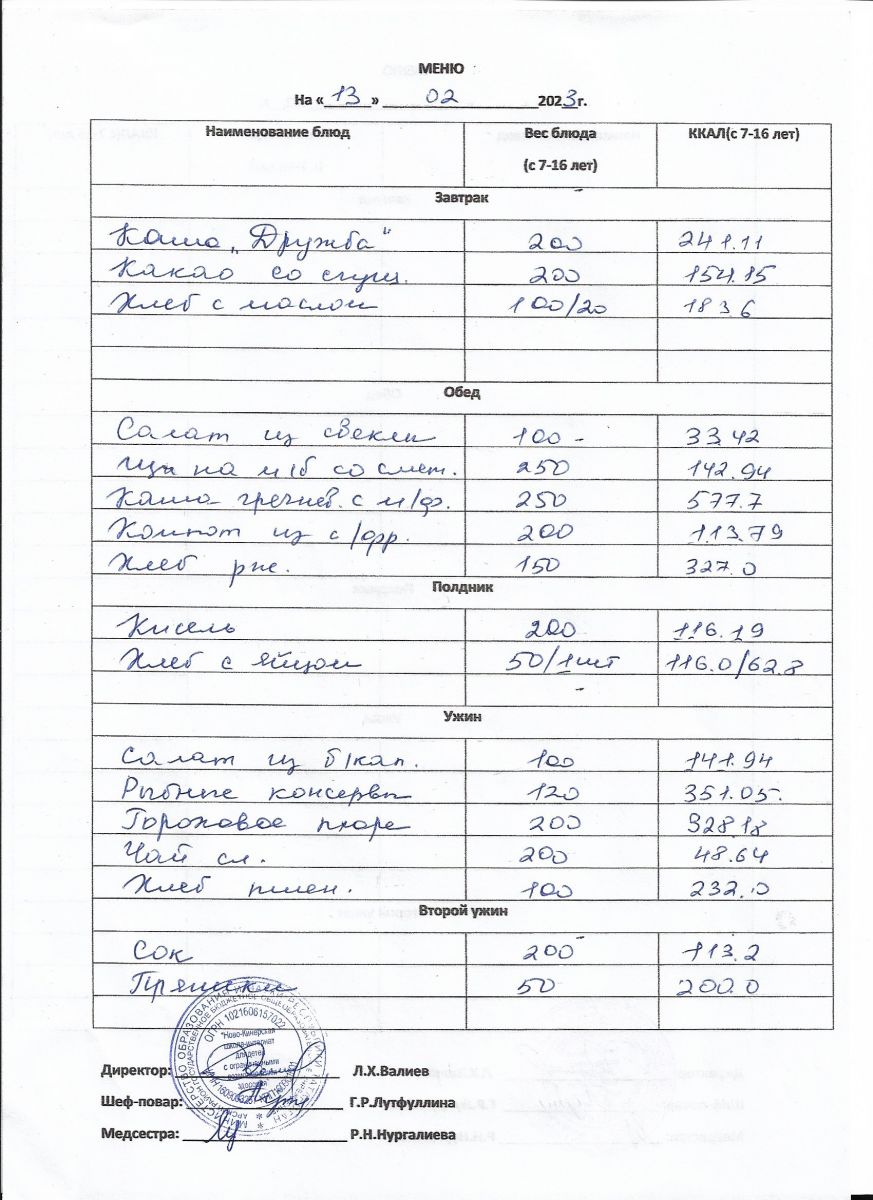 МЕНЮ
На « 13 » 02 2023г.
Наименование блюд Вес блюда (с 7-16 лет) ККАЛ(с 7-16 лет)
Завтрак
Каша „Дружба“ 200 241.11
Какао со сгущ. 200 154.15
Хлеб с маслом 100/20 183.6
Обед
Салат из свеклы 100 - 33.42
Щи на м/б со смет. 250 142.94
Каша гречнев. с м/ф. 250 577.7
Компот из с/фр. 200 113.79
Хлеб рж. 150 327.0
Полдник
Кисель 200 116.19
Хлеб с яйцом 50/1шт 116.0/62.8
Ужин
Салат из б/кап. 100 141.94
Рыбные консервы 120 351.05.
Гороховое пюре 200 328.18
Чай сл. 200 48.64
Хлеб пшен. 100 232.0
Второй ужин
Сок 200 113.2
Пряники 50 200.0
ОГРН 1021606157022
"Ново-Кинерская
школа-интернат
для детей
с ограниченными
возможностями
здоровья"
Директор: Л.Х.Валиев
Шеф-повар: Г.Р.Лутфуллина
Медсестра: Р.Н.Нургалиева